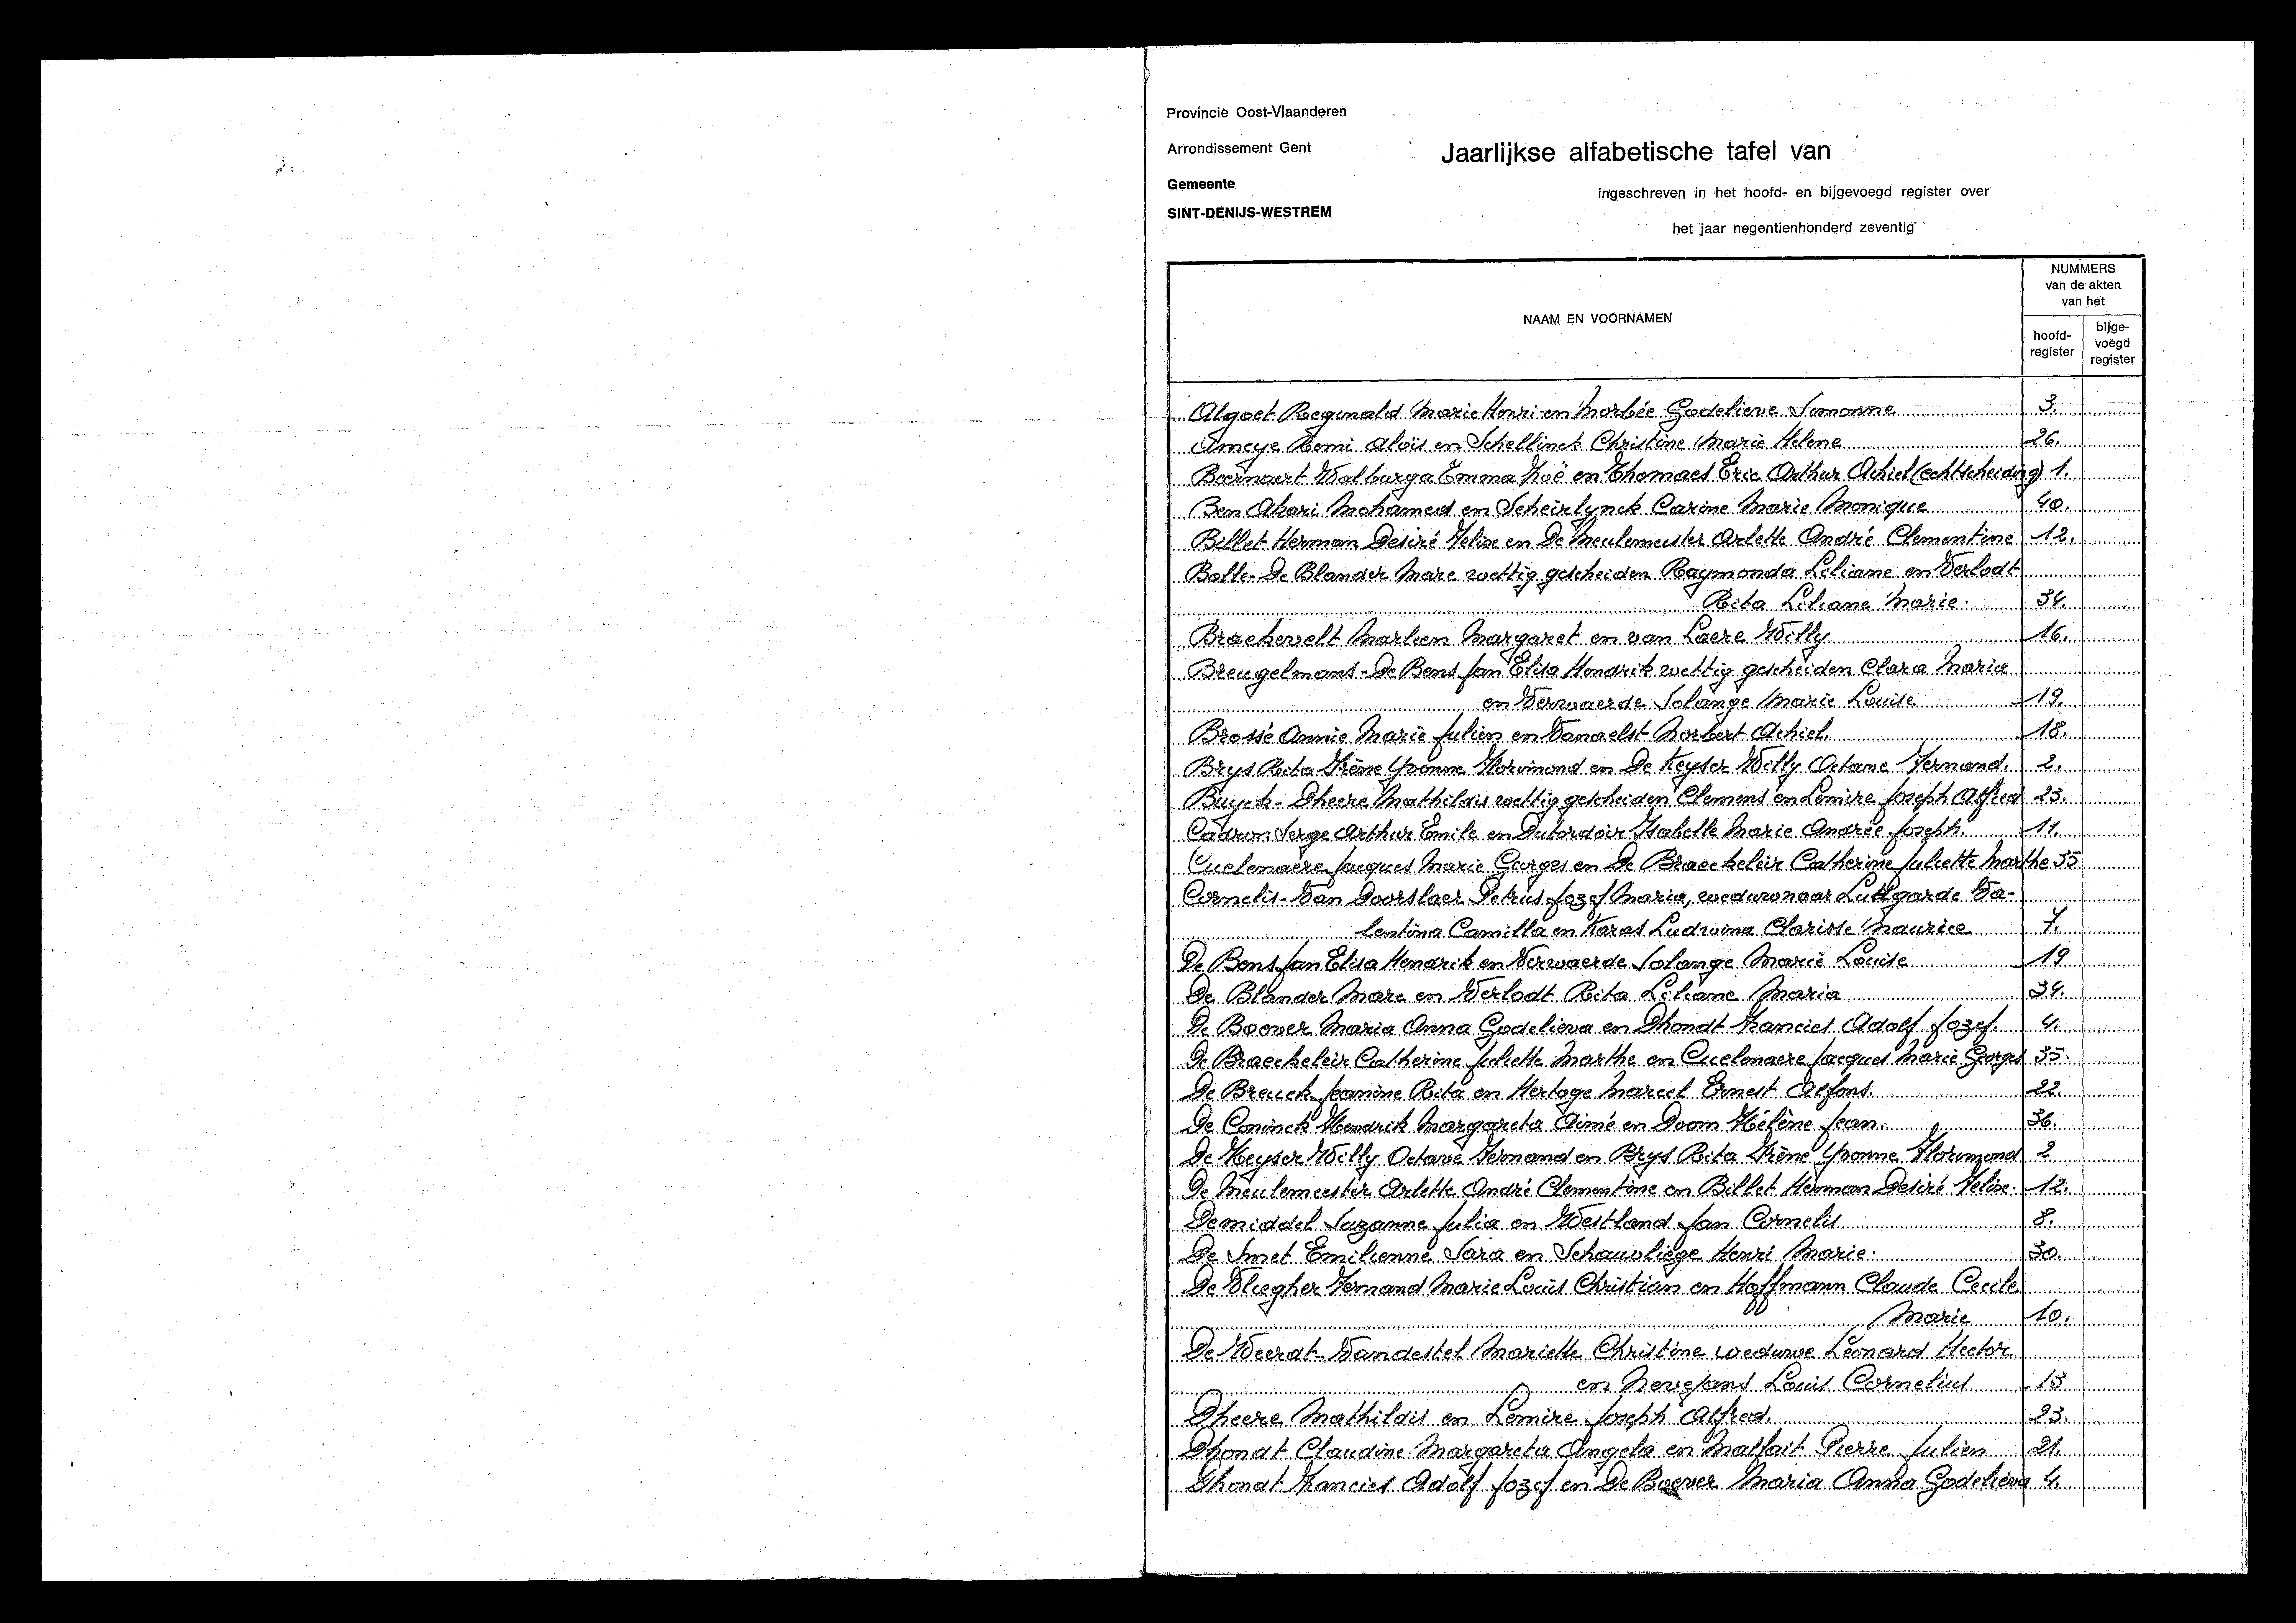 Provincie Oost-Vlaanderen
Arrondissement Gent
Gemeente
SINT-DENIJS-WESTREM
Jaarlijkse alfabetische tafel van
ingeschreven in het hoofd- en bijgevoegd register over
het jaar negentienhonderd zeventig
NAAM EN VOORNAMEN
NUMMERS
van de akten
van het
hoofd-
register
bijge-
voegd
register
Algoet Reginald Marie Henri en Morbée Godelieve Simonne 3.
Ameye Remi Aloïs en Schellinck Christine Marie Helene 26.
Beernaert Walburga Emma Zoë en Thomaes Eric Arthur Achiel (echtscheiding) 1.
Ben Akari Mohamed en Scheirlynck Carine Marie Monique 40.
Billet Herman Desiré Felix en De Meulemeester Arlette André Clementine 12.
Bolle-De Blander Marc wettig gescheiden Raymonda Liliane en Verlodt
Rita Liliane Marie. 34.
Braekevelt Marleen Margaret en van Laere Willy 16.
Breugelmans-De Bens Jan Elisa Hendrik wettig gescheiden Clara Maria
en Verwaerde Solange Marie Louise 19.
Brossé Annie Marie Julien en Vanaelst Norbert Achiel. 18.
Brys Rita Irène Yvonne Florimond en De Keyser Willy Octave Fernand. 2.
Buyck-Dheere Mathildis wettig gescheiden Clemens en Lemire Joseph Alfred 23.
Cadron Serge Arthur Emile en Dutordoir Isabelle Marie Andrée Joseph. 11.
Cuelenaere Jacques Marie Georges en De Braeckeleir Catherine Juliette Marthe 35
Cornelis-Van Doorslaer Petrus Jozef Maria, weduwnaar Lutgarde Va-
lentina Camilla en Karas Ludwina Clarisse Maurice 7.
De Bens Jan Elisa Hendrik en Verwaerde Solange Marie Louise 19
De Blander Marc en Verlodt Rita Liliane Maria 34.
De Boever Maria Anna Godelieva en Dhondt Francies Adolf Jozef. 4.
De Braeckeleir Catherine Juliette Marthe en Cuelenaere Jacques Marie Georges 35.
De Breuck Jeanine Rita en Hertoge Marcel Ernest Alfons. 22.
De Coninck Hendrik Margareta Aimé en Doom Hélène Jean. 36.
De Keyser Willy Octave Fernand en Brys Rita Irène Yvonne Florimond 2
De Meulemeester Arlette André Clementine en Billet Herman Desiré Felix. 12.
Demiddel Suzanne Julia en Westland Jan Cornelis 8.
De Smet Emilienne Sara en Schauvliege Henri Marie. 30.
De Vliegher Fernand Marie Louis Christian en Hoffmann Claude Cecile
Marie 10.
De Weerat-Vandestel Mariette Christine weduwe Leonard Hector
en Nevejans Louis Cornelius 13
Dheere Mathildis en Lemire Joseph Alfred. 23.
Dhondt Claudine Margareta Angela en Malfait Pierre Julien 21.
Dhondt Francies Adolf Jozef en De Boever Maria Anna Godelieva 4.